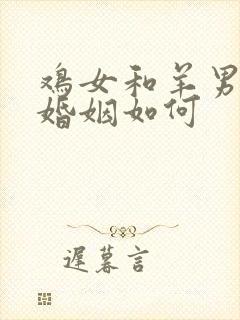 鸡女和羊男
婚姻如何
遲暮言